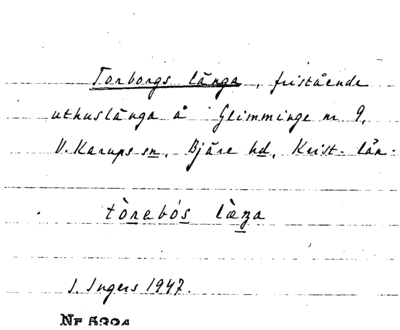 Torborgs länga, fristående
uthuslänga å Glimminge nr 9,
V. Karups sn, Bjäre hd, Krist. län.
tòrebós læŋa
I. Ingers 1947.
Nr 5394